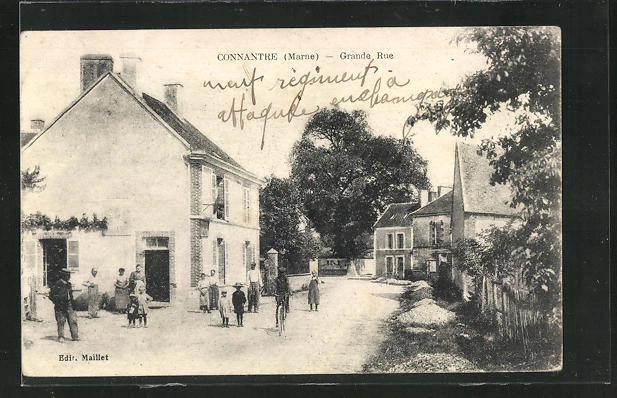 CONNANTRE (Marne) — Grande Rue
neuf régiment à
attaquer en champagne
Edit. Maillet